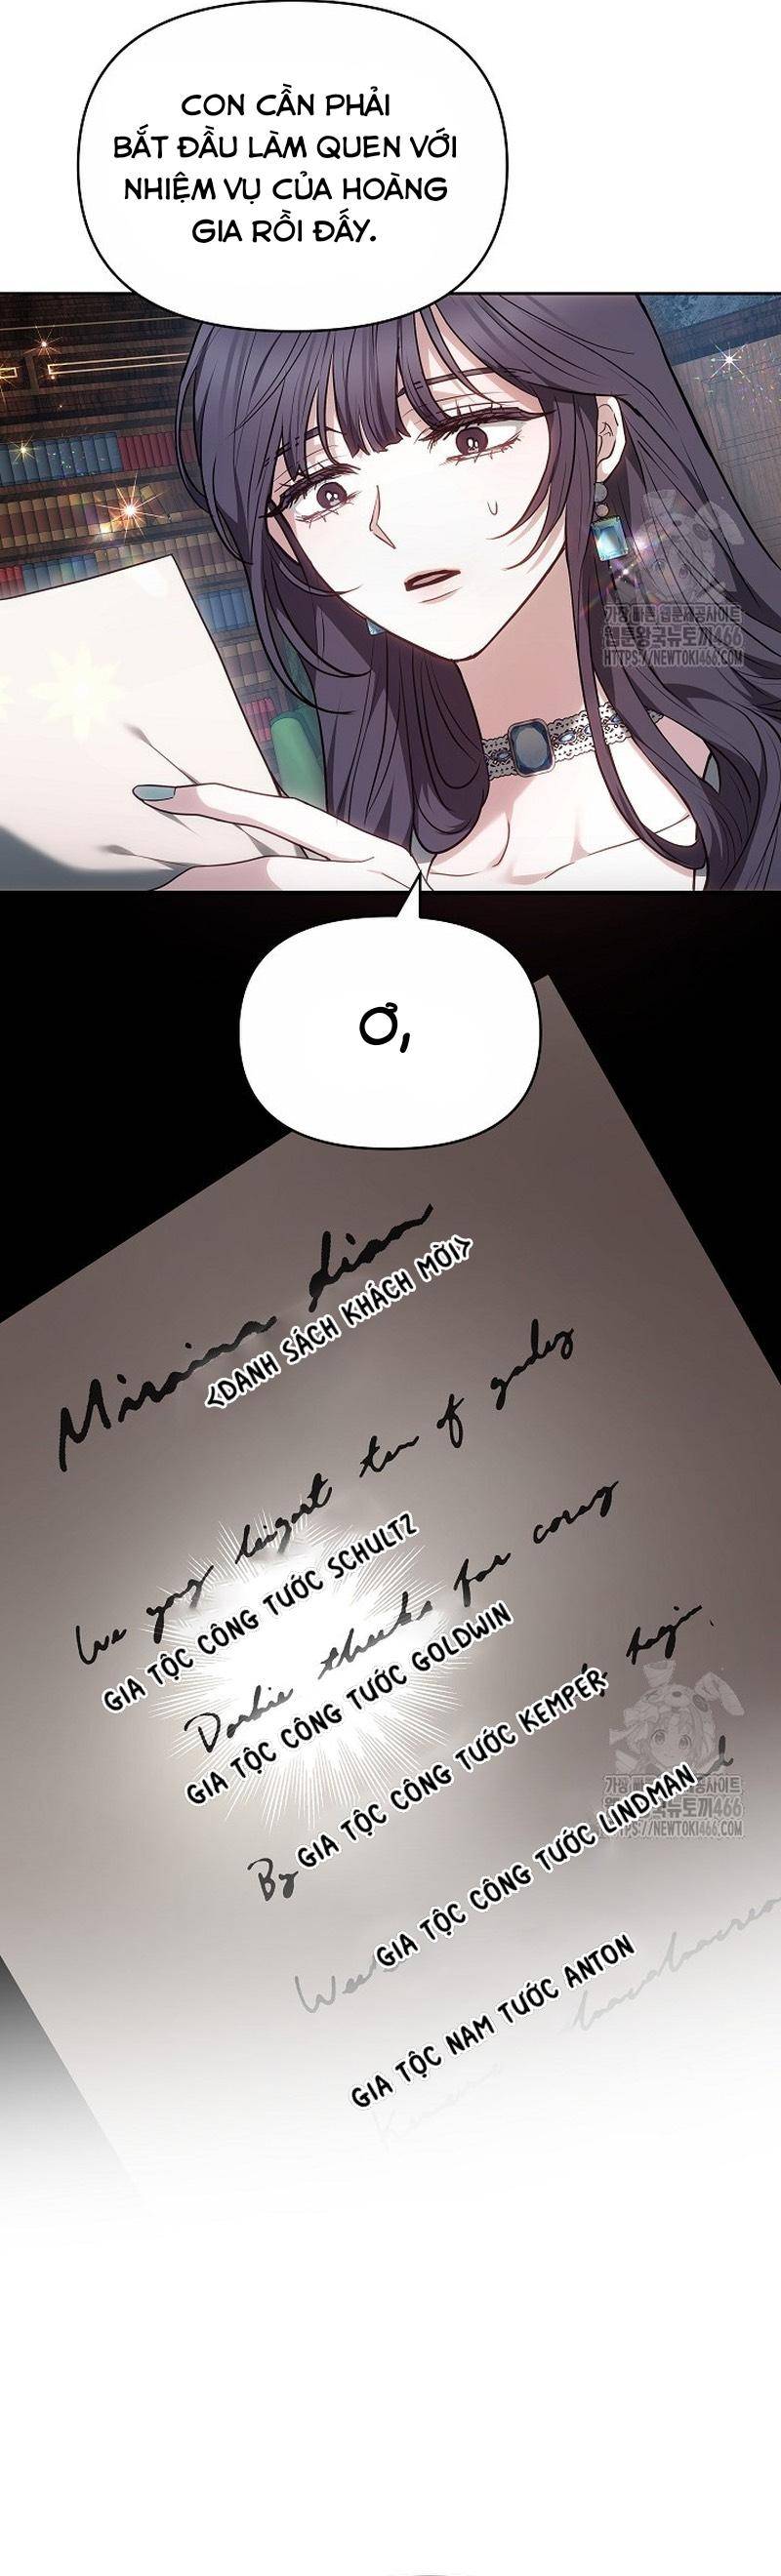 CON CẦN PHẢI
BẮT ĐẦU LÀM QUEN VỚI
NHIỆM VỤ CỦA HOÀNG
GIA RỒI ĐẤY.
가장 빠른 웹툰제공사이트
웹툰왕국뉴토끼466
HTTPS://NEWTOKI466.COM
Ơ,
<DANH SÁCH KHÁCH MỜI>
GIA TỘC CÔNG TƯỚC SCHULTZ
GIA TỘC CÔNG TƯỚC GOLDWIN
GIA TỘC CÔNG TƯỚC KEMPER
By
가장 빠른 웹툰제공사이트
웹툰왕국뉴토끼466
HTTPS://NEWTOKI466.COM
GIA TỘC CÔNG TƯỚC LINDMAN
GIA TỘC NAM TƯỚC ANTON